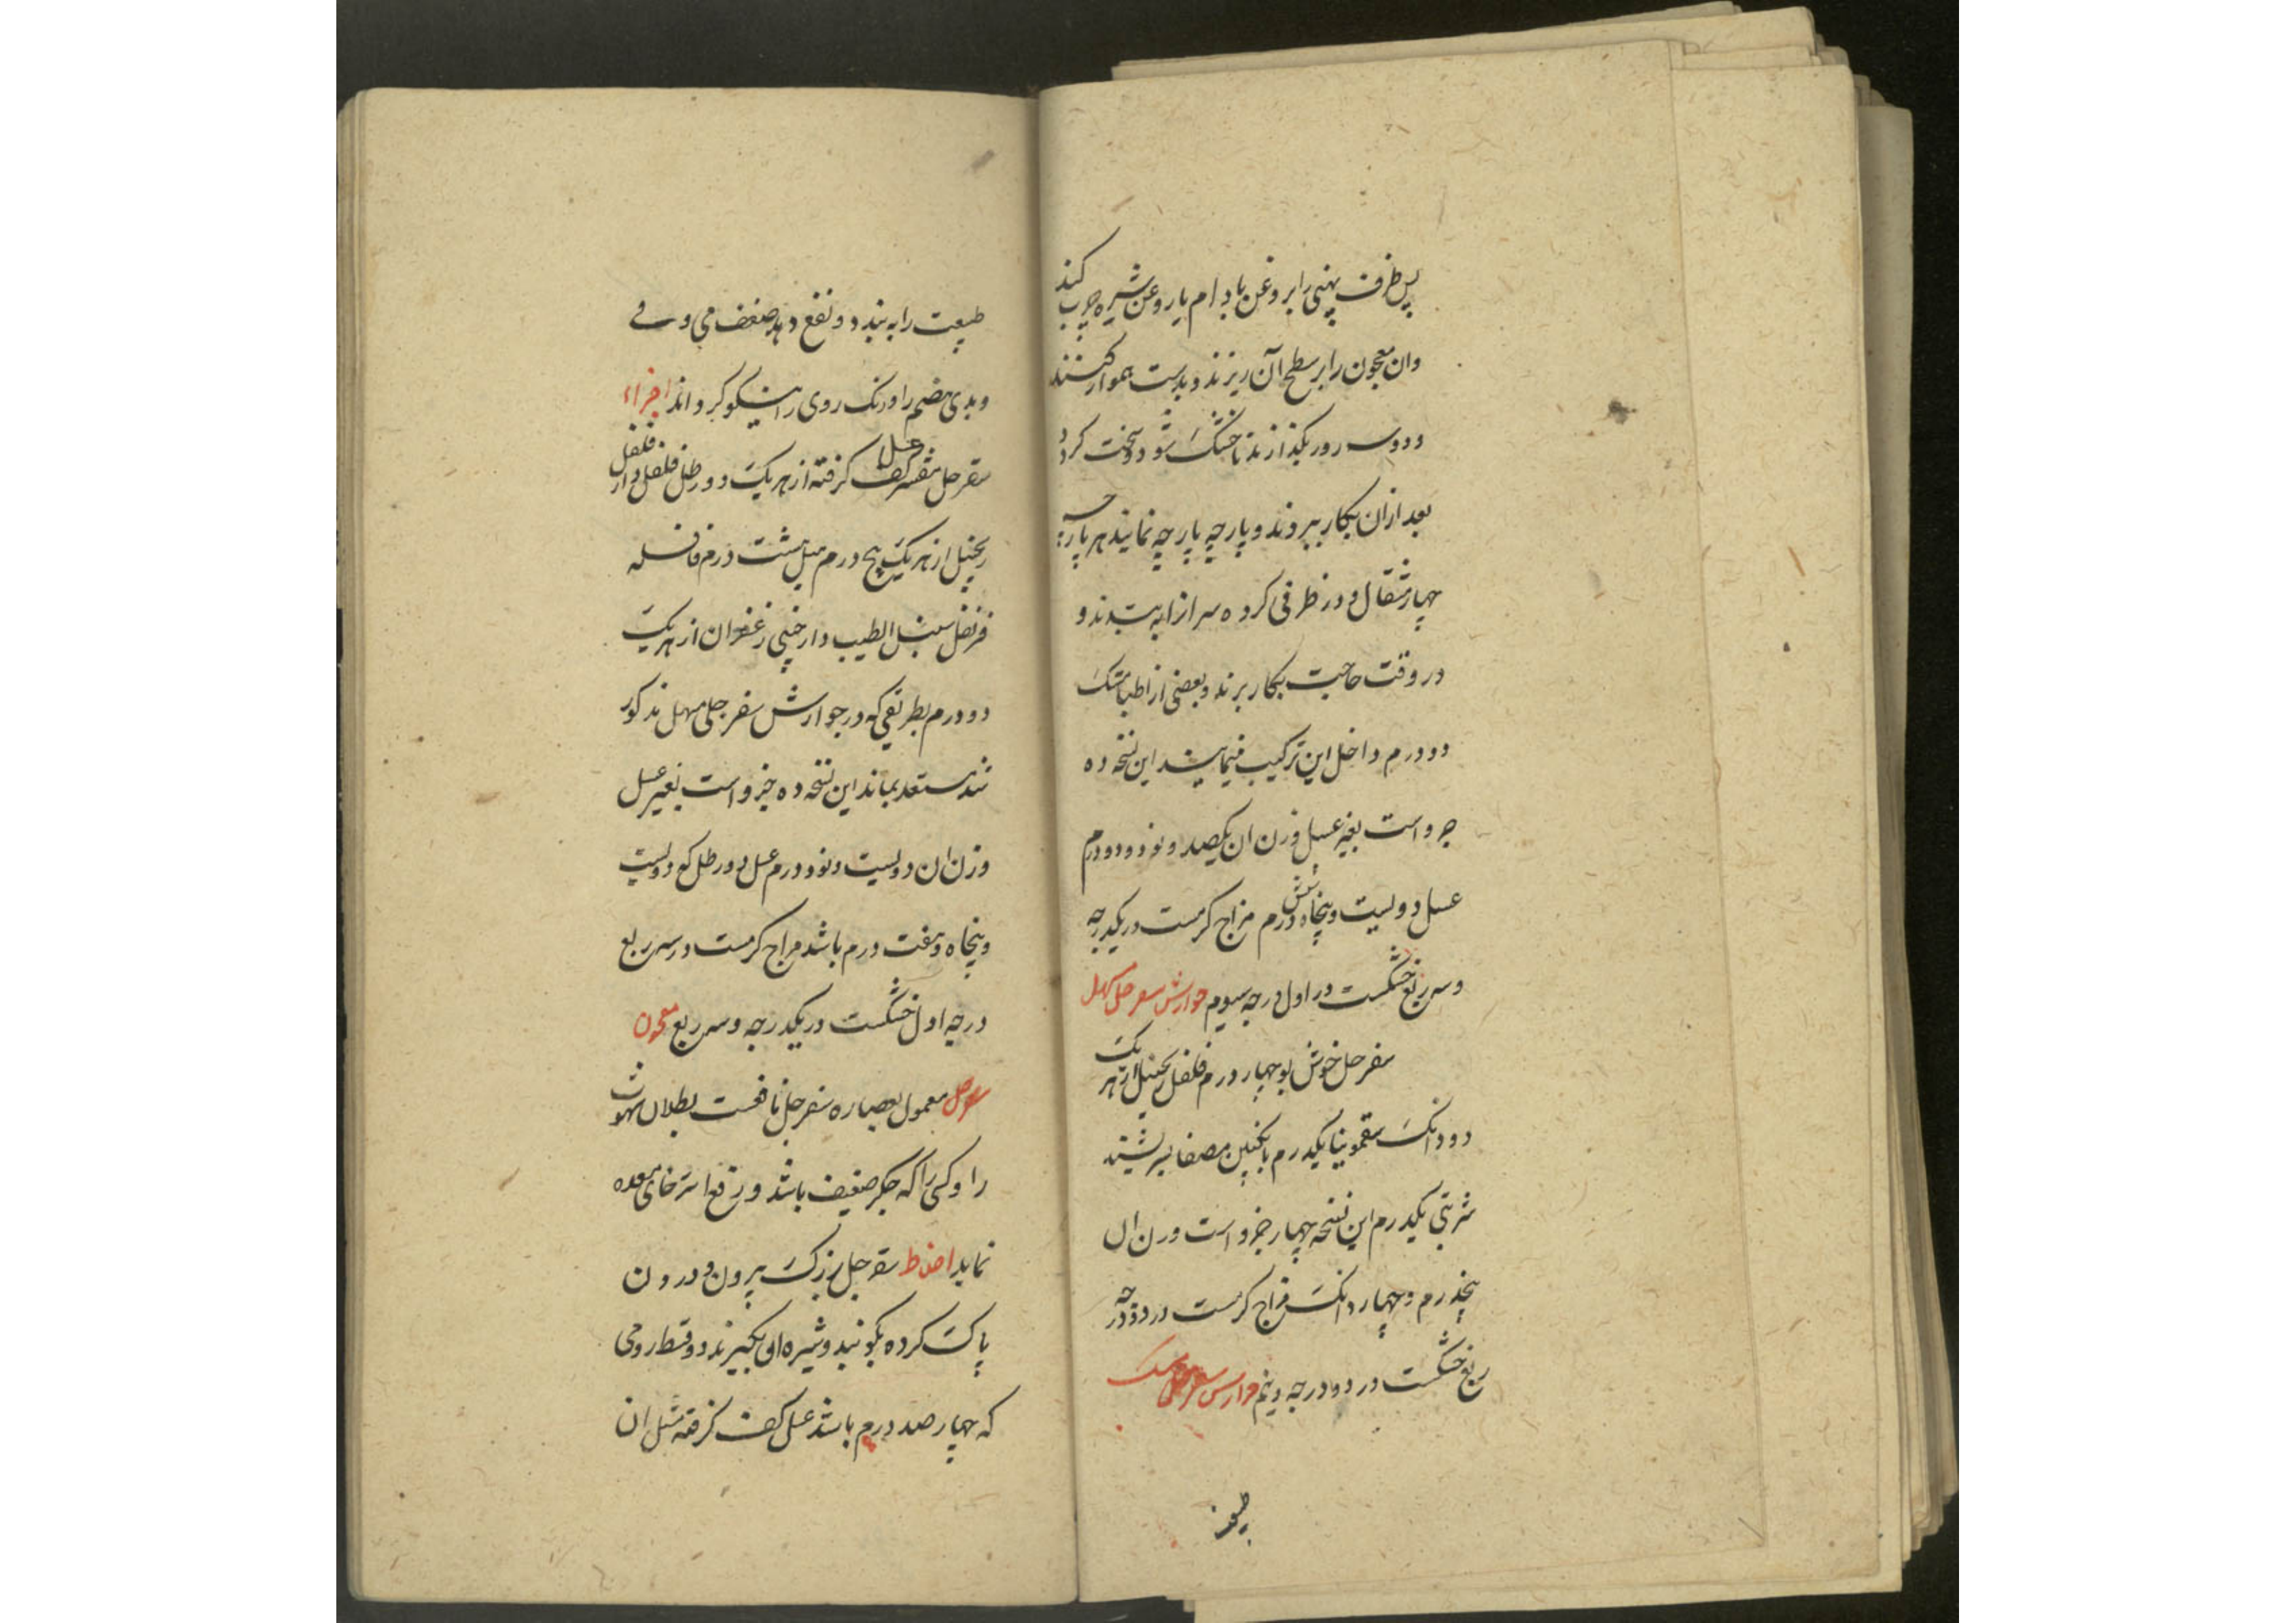 پس ظرف پهنی را بروغن بادام یا روغن شیره چرب کنند
وان معجون را بر سطح آن ریزند و بدست هموار کنند
و دو سه روز بگذارند تا خشک شود و سخت کردد
بعد ازان بکار ببرند و پارچه پارچه نمایند هر پارچه
چهار مثقال و در ظرفی کرده سر انرا به بندند و
در وقت حاجت بکار برند و بعضی از اطبا مشک
دو درم داخل این ترکیب مینمایند این نسخه ده
جزو است بغیر عسل وزن ان یکصد و نود و دو درم
عسل دویست و پنجاه شش درم مزاج کرمست در یکدرجه
و سه ربع خشکست در اول درجه سیوم جوارش سفرجل مسهل
سفرجل خوش بو چهار درم فلفل زنجبیل از هر یک
دو دانک سقمونیا یکدرم بانکبین مصفا بسرشند
شربتی یکدرم این نسخه چهار جزو است وزن ان
پنجدرم و چهار دانک مزاج کرمست در دو درجه
ربع خشکست در دو درجه و نیم جوارش سفرجل ممسک
طبیعت
طبیعت را به بندد و نفع دهد ضعف می و قی
و بدی هضم را و رنک روی را نیکو کرداند اجزاء
سفرجل مقشر عسل کف کرفته از هر یک دو رطل فلفل دار فلفل
زنجبیل از هر یک پنج درم هیل هشت درم قاقله
قرنفل سنبل الطیب دارچینی زعفران از هر یک
دو درم بطریقی که در جوارش سفرجلی مسهل مذکور
شد مستعد بماند این نسخه ده جزو است بغیر عسل
وزن ان دویست و نود درم عسل دو رطل که دویست
و پنجاه و هفت درم باشد مزاج کرمست در سه ربع
درجه اول خشکست در یکدرجه و سه ربع معجون
سفرجل معمول بعصاره سفرجل نافعست بطلان شهوت
را و کسی را که جکر ضعیف باشد و رفع استرخای معده
نماید اخلاط سفرجل بزرک بیرون و درون
پاک کرده بکوبند و شیره ان بکیرند دو قسط رومی
که چهار صد درم باشد عسل کف کرفته مثل ان